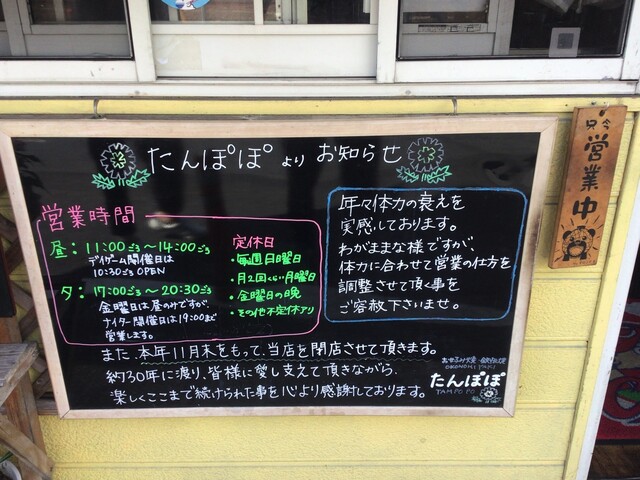 たんぽぽ より お知らせ
営業時間
昼：11:00ごろ～14:00ごろ
デイゲーム開催日は
10:30ごろ OPEN
夕：17:00ごろ～20:30ごろ
金曜日は昼のみですが、
ナイター開催日は19:00まで
営業します。
定休日
・毎週月曜日
・月2回くらい
・金曜日の晩
・その他不定休アリ
年々体力の衰えを
実感しております。
わがままな様ですが、
体力に合わせて営業の仕方を
調整させて頂く事を
ご容赦下さいませ。
また、本年11月末をもって、当店を閉店させて頂きます。
約30年に渡り、皆様に愛し支えて頂きながら、
楽しくここまで続けられた事を心より感謝しております。
お好み焼・鉄板焼
OKONOMI YAKI
たんぽぽ
TAMPOPO
只今
営業中